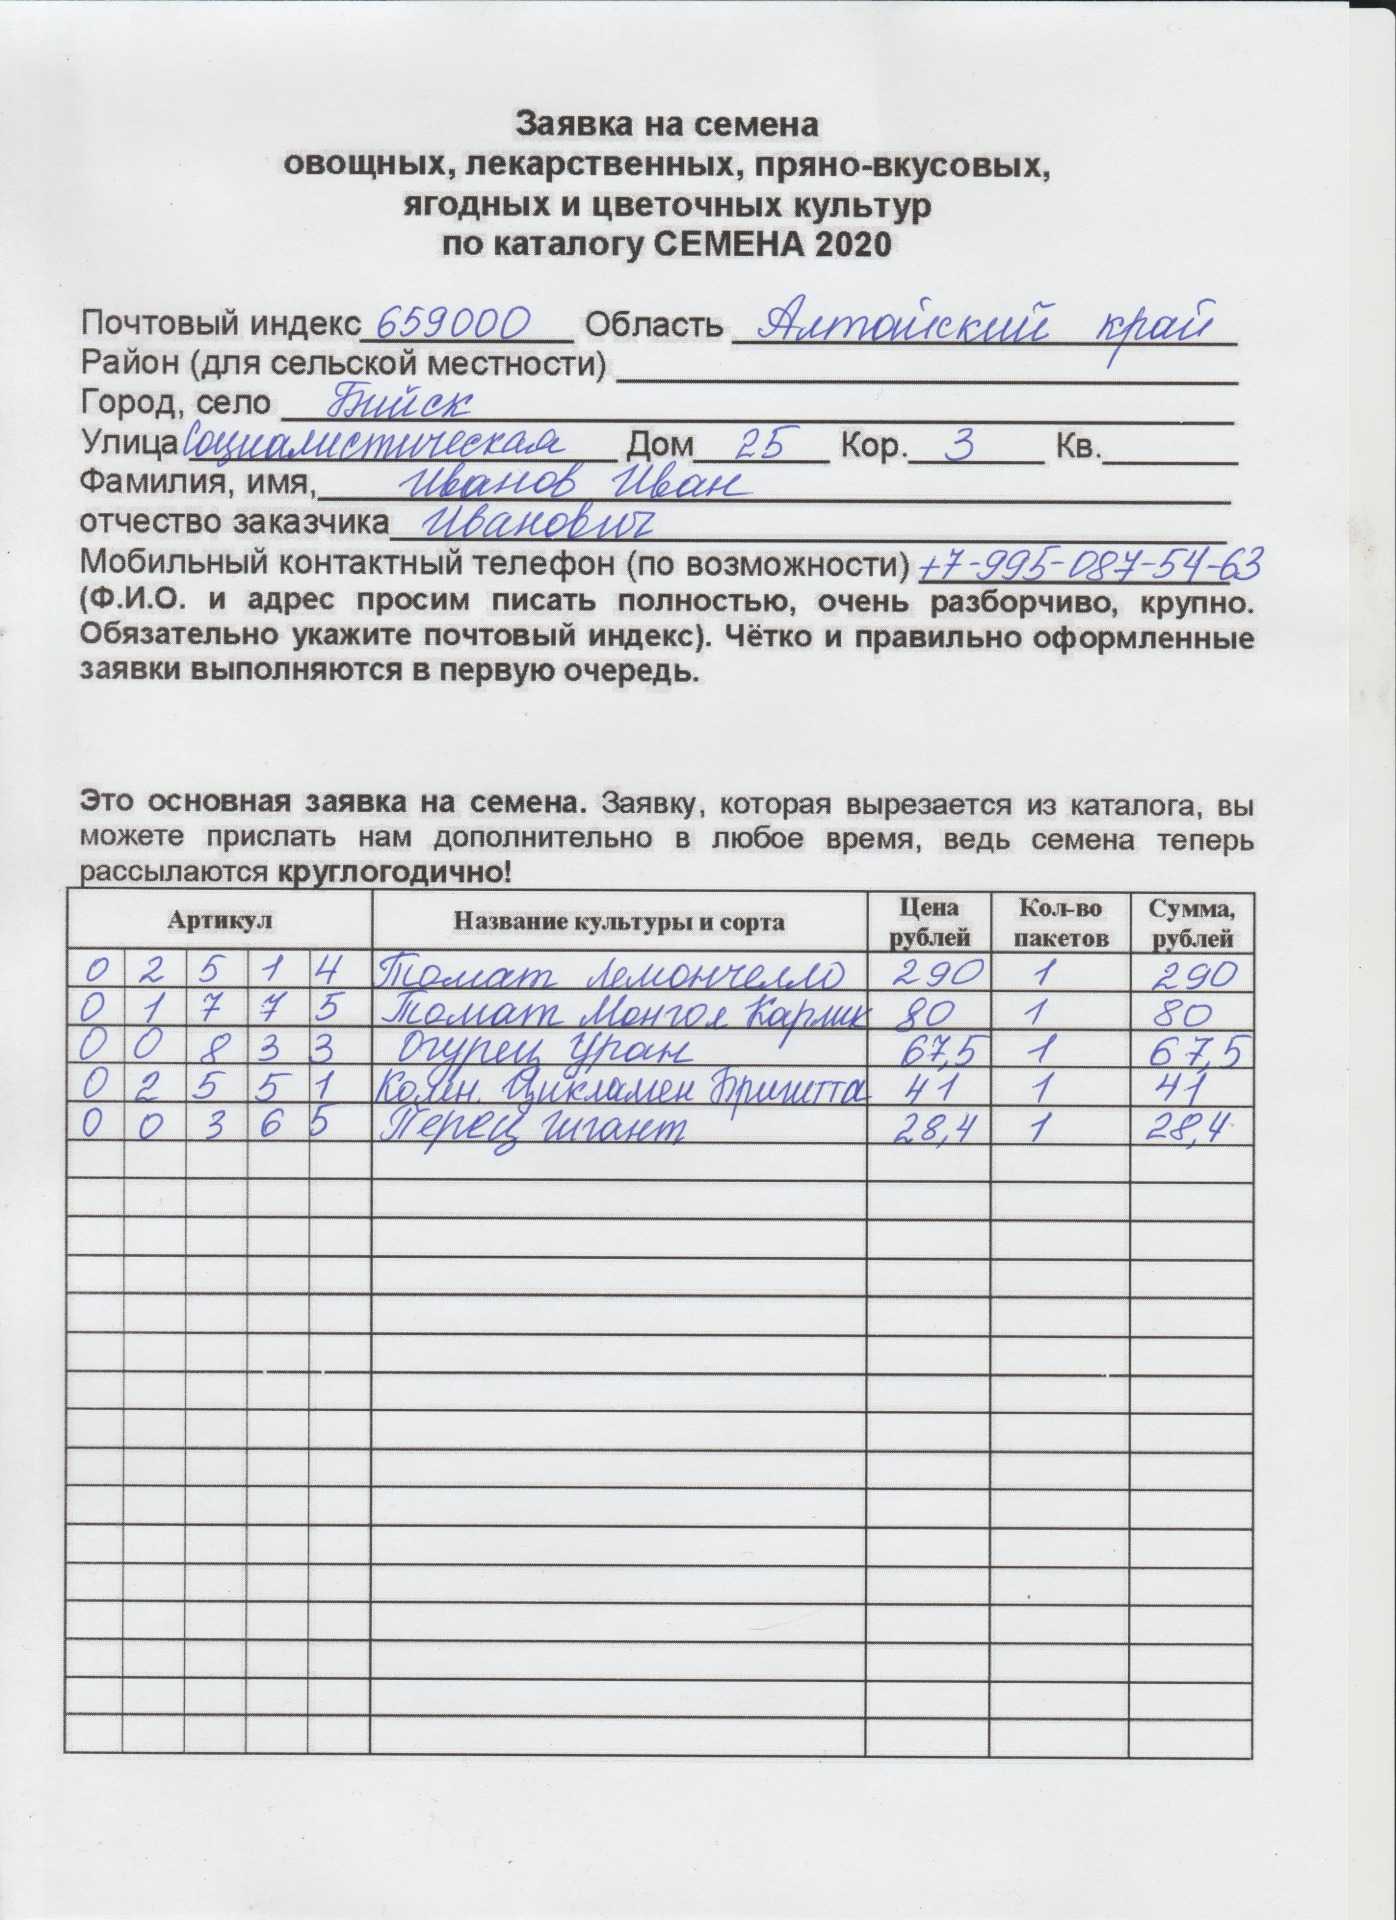 Заявка на семена
овощных, лекарственных, пряно-вкусовых,
ягодных и цветочных культур
по каталогу СЕМЕНА 2020
Почтовый индекс 659000 Область Алтайский край
Район (для сельской местности)
Город, село Бийск
Улица Социалистическая Дом 25 Кор. 3 Кв.
Фамилия, имя, Иванов Иван
отчество заказчика Иванович
Мобильный контактный телефон (по возможности) +7-995-087-54-63
(Ф.И.О. и адрес просим писать полностью, очень разборчиво, крупно.
Обязательно укажите почтовый индекс). Чётко и правильно оформленные
заявки выполняются в первую очередь.
Это основная заявка на семена. Заявку, которая вырезается из каталога, вы
можете прислать нам дополнительно в любое время, ведь семена теперь
рассылаются круглогодично!
Артикул Название культуры и сорта Цена рублей Кол-во пакетов Сумма, рублей
0 2 5 1 4 Томат Лемончелло 290 1 290
0 1 7 7 5 Томат Монгол Карлик 80 1 80
0 0 8 3 3 Огурец Уран 67,5 1 67,5
0 2 5 5 1 Комн. Цикламен Бригитта 41 1 41
0 0 3 6 5 Перец Гигант 28,4 1 28,4